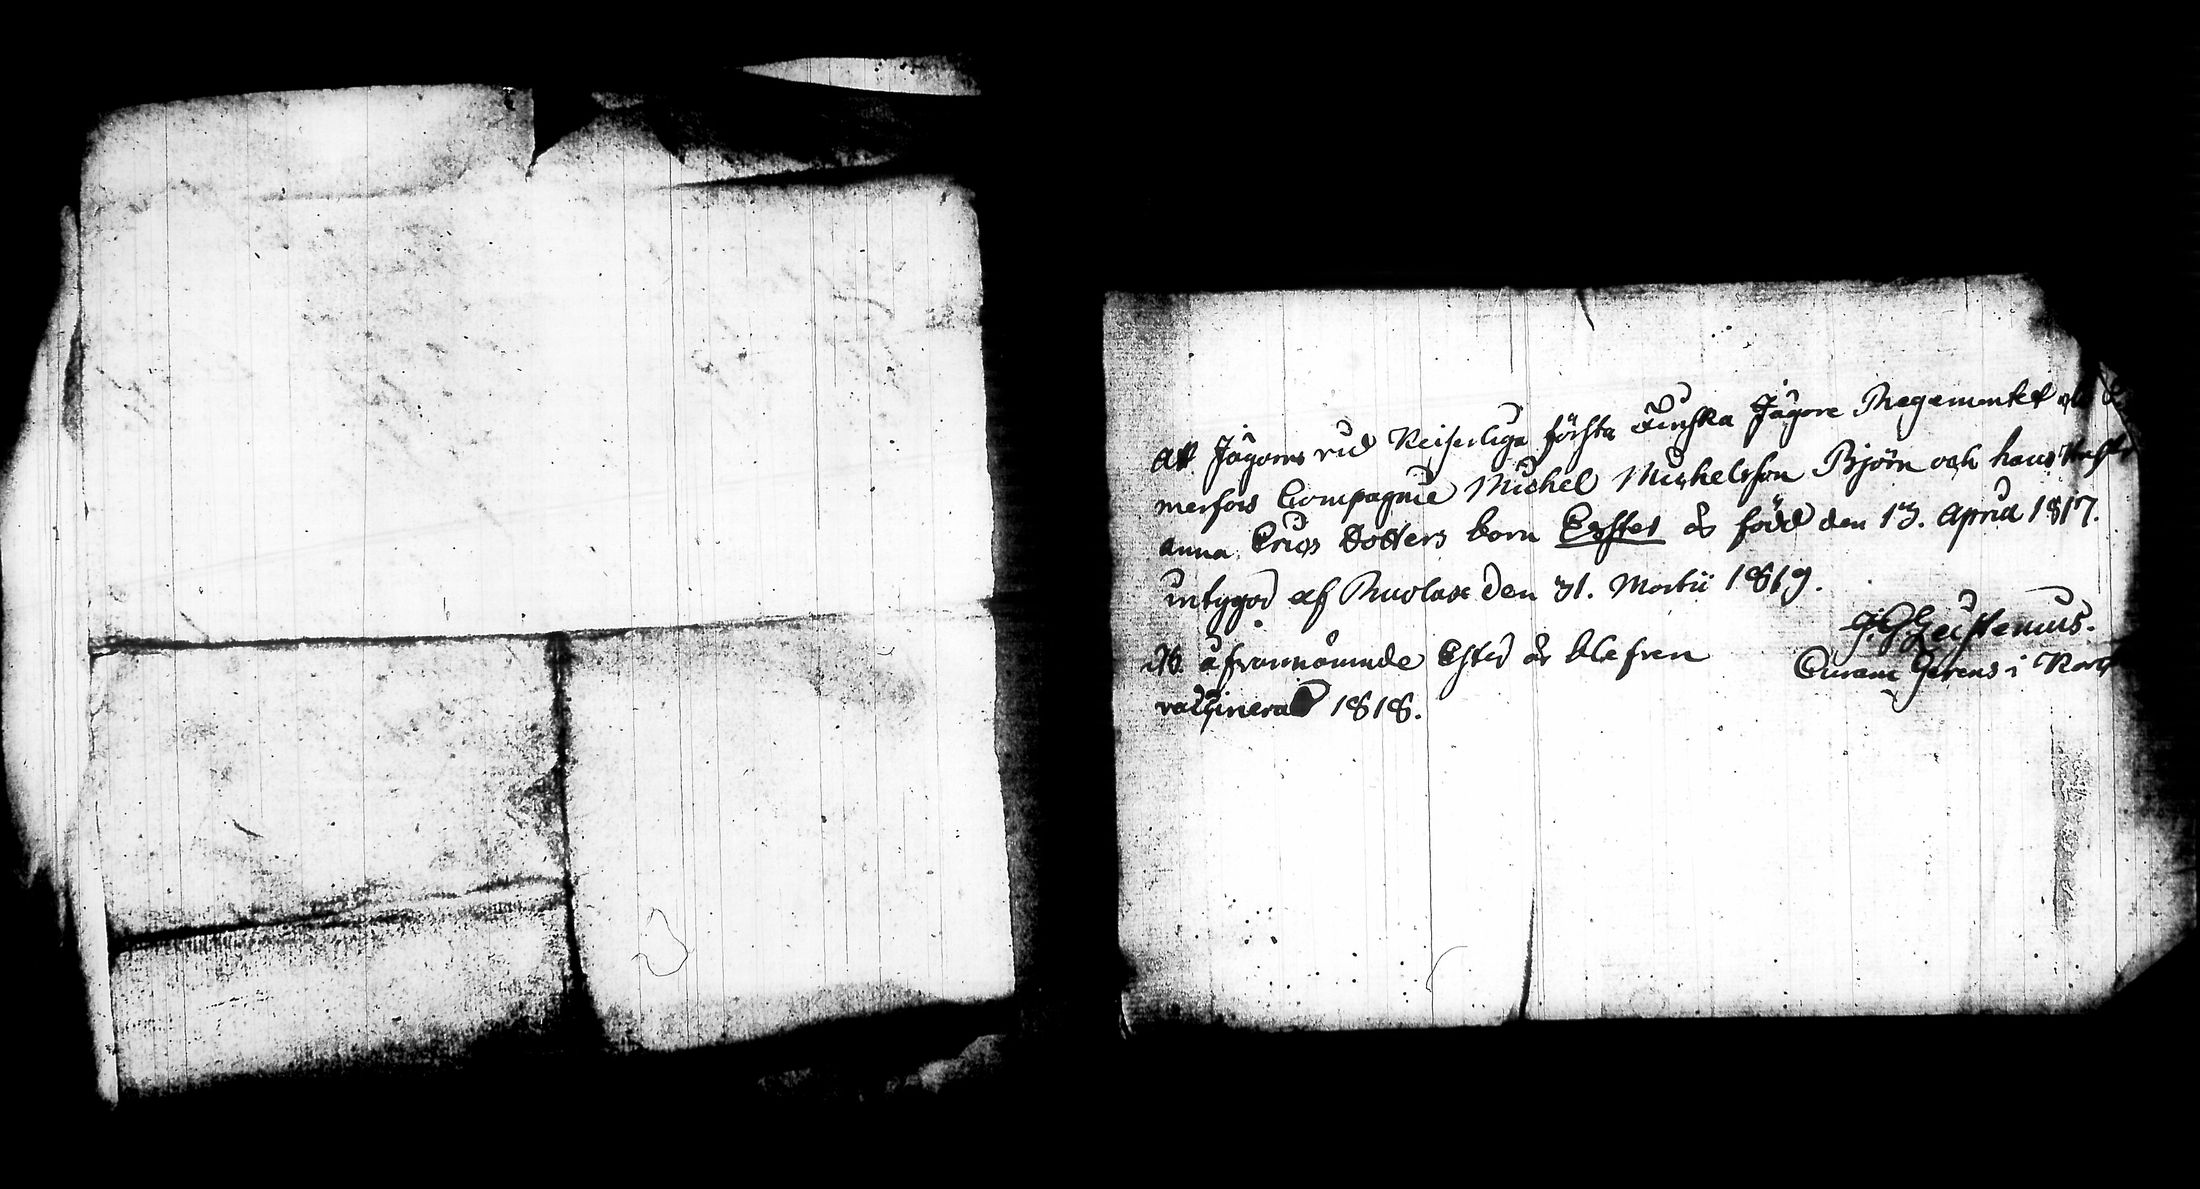 att Jägarns vid Keiserliga första Finska Jägare Regementet och
merfors Compagnie Michel Michelsson Björn och hans Hustr
anna Erics Dotters barn Ester är född den 13. April 1817.
intygad af Ruvlax den 31. Martii 1819.
J. G. Zeistenius.
Curam Gerens i
At åfvannämnde Ester är blefven
vaccinerad 1818.